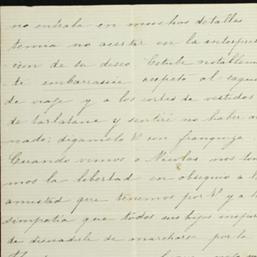 no entraba en muchos detalles
temia no acertar en la interpre
cion de su deseo. Estube notableme
te embarazada respeto al saque
de viaje y a los cortes de vestidos
de tarlatana y sentiré no haber a
nado; digamelo V. con franqueza
Cuando vimos a Nicolas nos to
mos la libertad en obsequio a l
amistad que tenemos por V. y a l
simpatia que todos sus hijos inspi
de disuadirle de marcharse por la